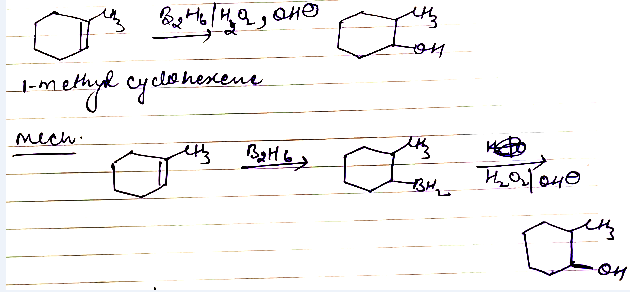 CH3 B2H6/H2O2, OH⊖ CH3
OH
1-methyl cyclohexene
Mech.
CH3 B2H6 CH3
BH2 H2O2/OH⊖
CH3
OH